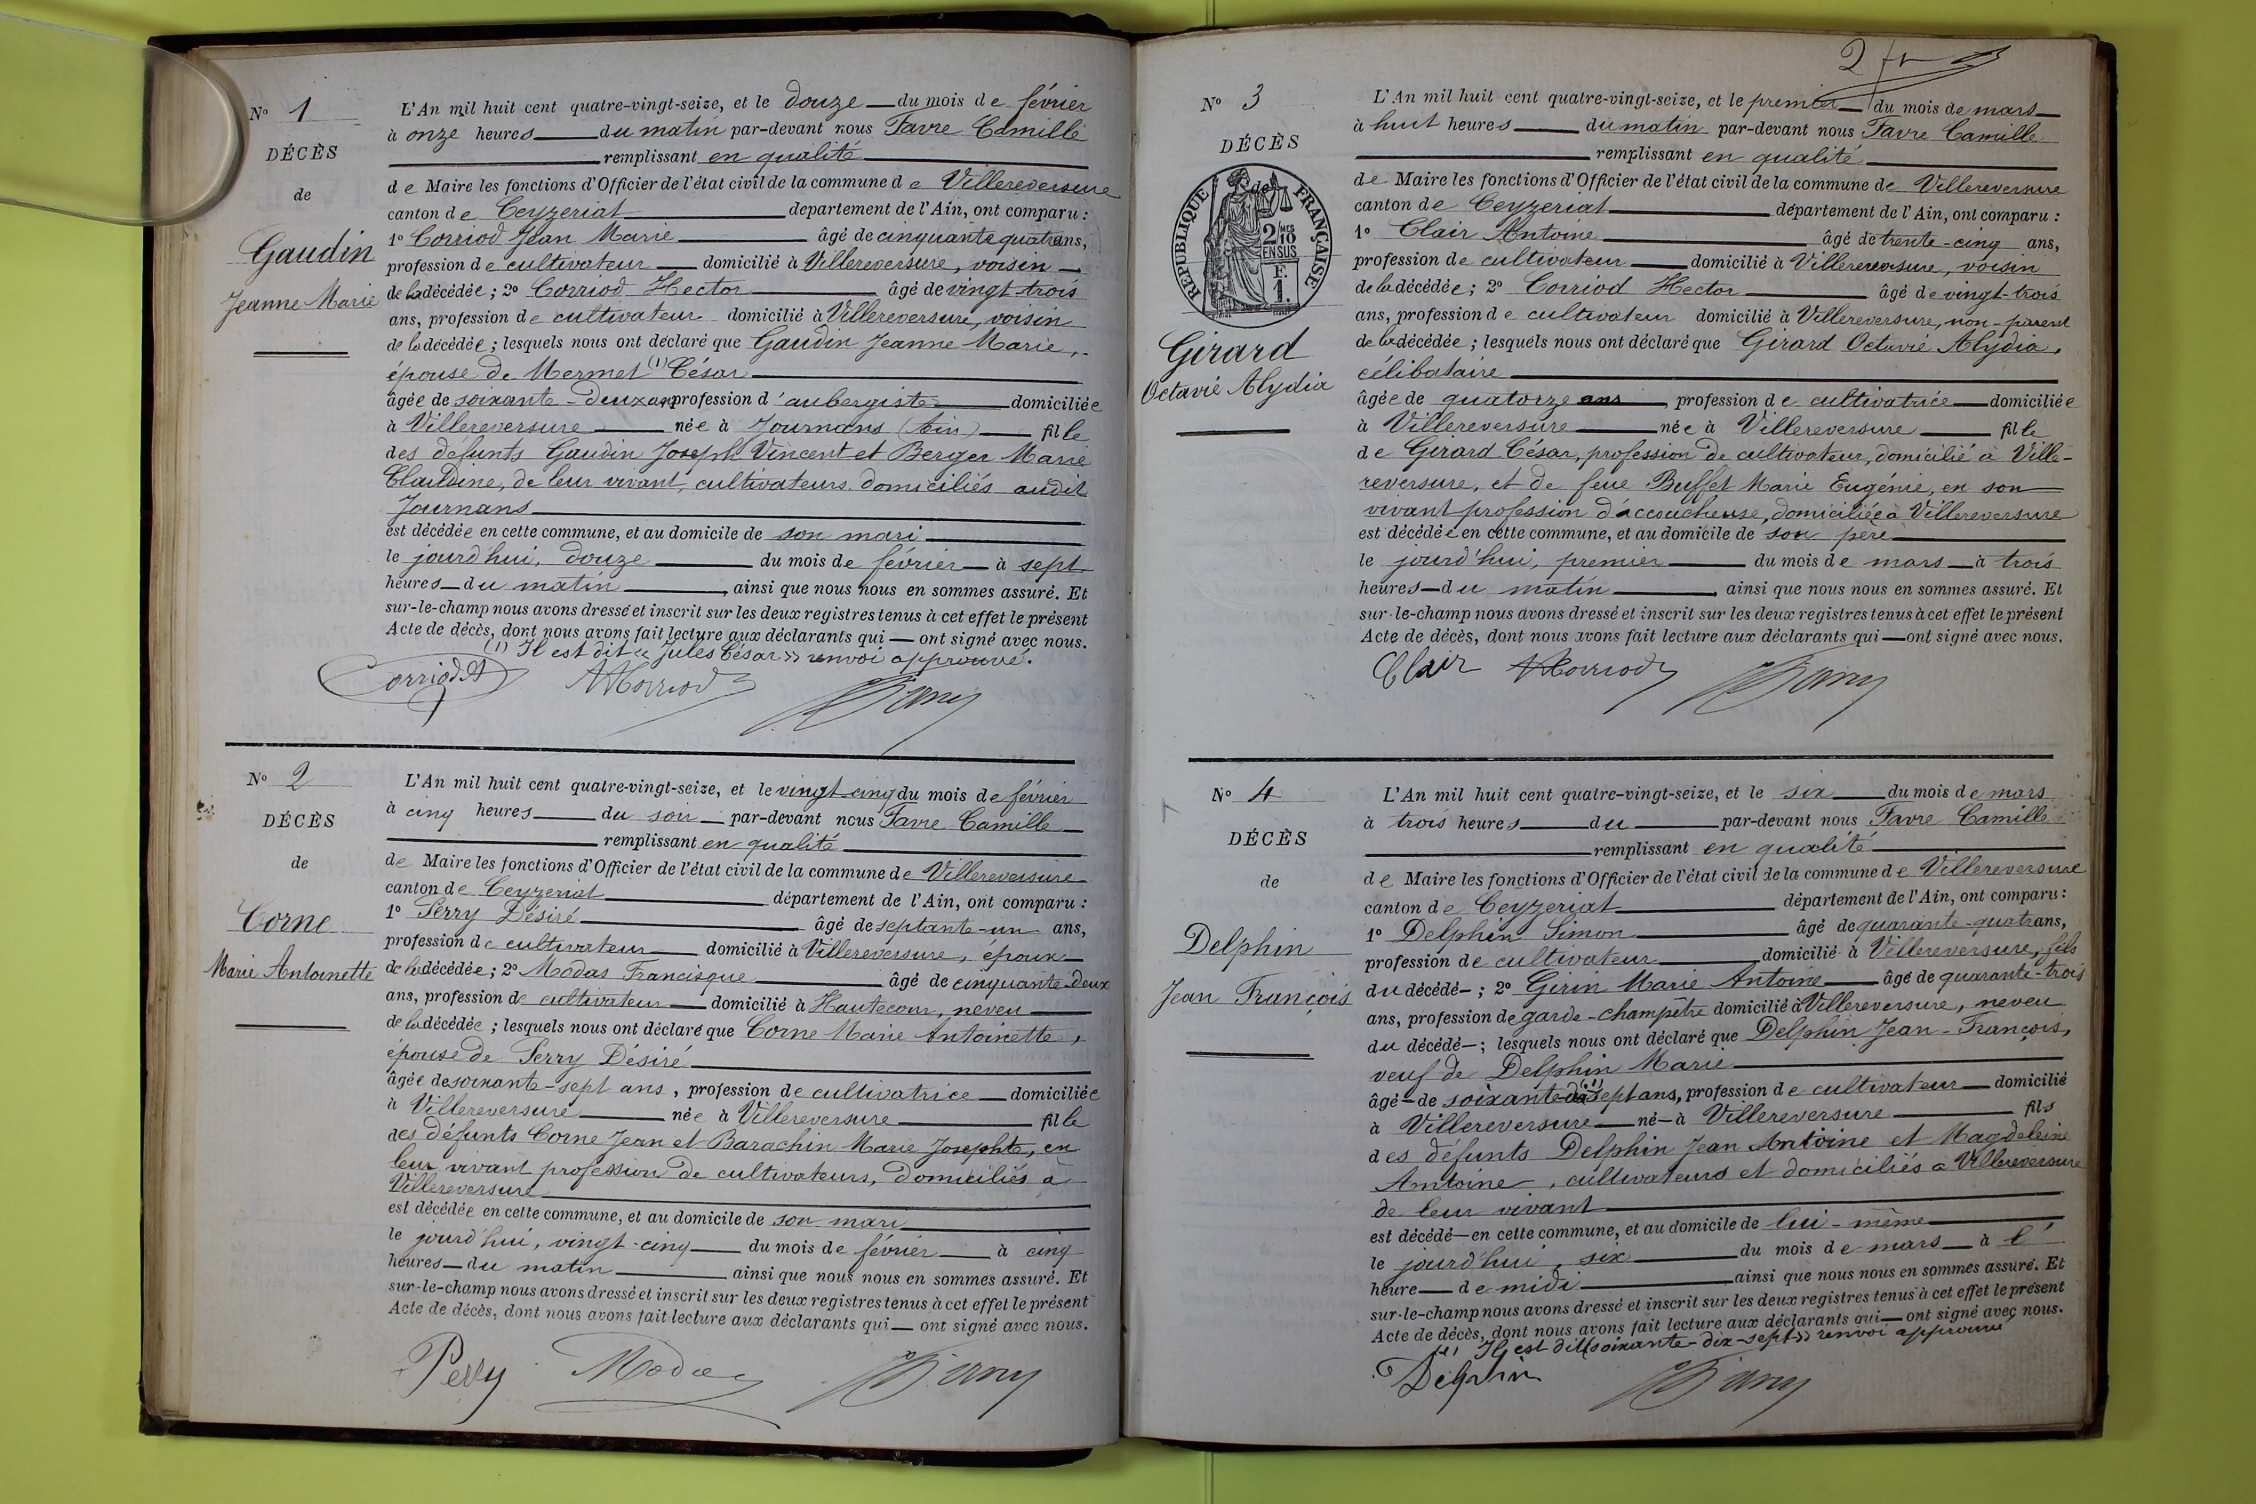 N° 1
DÉCÈS
de
Gaudin
Jeanne Marie
L'An mil huit cent quatre-vingt-seize, et le douze du mois de février
à onze heures du matin par-devant nous Favre Camille
remplissant en qualité
de Maire les fonctions d'Officier de l'état civil de la commune de Villereversure
canton de Ceyzeriat département de l'Ain, ont comparu :
1° Corriod Jean Marie âgé de cinquante quatre ans,
profession de cultivateur domicilié à Villereversure, voisin
de la décédée ; 2° Corriod Hector âgé de vingt trois
ans, profession de cultivateur domicilié à Villereversure, voisin
de la décédée ; lesquels nous ont déclaré que Gaudin Jeanne Marie,
épouse de Mermet (1) César
âgée de soixante-deux ans profession d'aubergiste domiciliée
à Villereversure née à Journans (Ain) fille
des défunts Gaudin Joseph Vincent et Berger Marie
Claudine, de leur vivant, cultivateurs domiciliés audit
Journans
est décédée en cette commune, et au domicile de son mari
le jourd'hui, douze du mois de février à sept
heures du matin, ainsi que nous nous en sommes assuré. Et
sur-le-champ nous avons dressé et inscrit sur les deux registres tenus à cet effet le présent
Acte de décès, dont nous avons fait lecture aux déclarants qui ont signé avec nous.
(1) Il est dit « Jules César » renvoi approuvé.
Corriod
Corriod
N° 2
DÉCÈS
de
Corne
Marie Antoinette
L'An mil huit cent quatre-vingt-seize, et le vingt-cinq du mois de février
à cinq heures du soir par-devant nous Favre Camille
remplissant en qualité
de Maire les fonctions d'Officier de l'état civil de la commune de Villereversure
canton de Ceyzeriat département de l'Ain, ont comparu :
1° Perry Désiré âgé de septante-un ans,
profession de cultivateur domicilié à Villereversure, époux
de la décédée ; 2° Modas Francisque âgé de cinquante-deux
ans, profession de cultivateur domicilié à Hautecour, neveu
de la décédée ; lesquels nous ont déclaré que Corne Marie Antoinette,
épouse de Perry Désiré
âgée de soixante-sept ans, profession de cultivatrice domiciliée
à Villereversure née à Villereversure fille
des défunts Corne Jean et Barachin Marie Josephte, en
leur vivant profession de cultivateurs, domiciliés à
Villereversure
est décédée en cette commune, et au domicile de son mari
le jourd'hui, vingt-cinq du mois de février à cinq
heures du matin ainsi que nous nous en sommes assuré. Et
sur-le-champ nous avons dressé et inscrit sur les deux registres tenus à cet effet le présent
Acte de décès, dont nous avons fait lecture aux déclarants qui ont signé avec nous.
Perry Modas
2
N° 3
DÉCÈS
de
RÉPUBLIQUE FRANÇAISE
2/10
MES
EN SUS
F.
1.
Girard
Octavie Alydia
L'An mil huit cent quatre-vingt-seize, et le premier du mois de mars
à huit heures du matin par-devant nous Favre Camille
remplissant en qualité
de Maire les fonctions d'Officier de l'état civil de la commune de Villereversure
canton de Ceyzeriat département de l'Ain, ont comparu :
1° Clair Antoine âgé de trente-cinq ans,
profession de cultivateur domicilié à Villereversure, voisin
de la décédée ; 2° Corriod Hector âgé de vingt-trois
ans, profession de cultivateur domicilié à Villereversure, non-parent
de la décédée ; lesquels nous ont déclaré que Girard Octavie Alydia,
célibataire
âgée de quatorze ans, profession de cultivatrice domiciliée
à Villereversure née à Villereversure fille
de Girard César, profession de cultivateur, domicilié à Ville-
reversure, et de feue Buffet Marie Eugénie, en son
vivant profession d'accoucheuse, domiciliée à Villereversure
est décédée en cette commune, et au domicile de son père
le jourd'hui, premier du mois de mars à trois
heures du matin, ainsi que nous nous en sommes assuré. Et
sur-le-champ nous avons dressé et inscrit sur les deux registres tenus à cet effet le présent
Acte de décès, dont nous avons fait lecture aux déclarants qui ont signé avec nous.
Clair Corriod
N° 4
DÉCÈS
de
Delphin
Jean François
L'An mil huit cent quatre-vingt-seize, et le six du mois de mars
à trois heures du par-devant nous Favre Camille
remplissant en qualité
de Maire les fonctions d'Officier de l'état civil de la commune de Villereversure
canton de Ceyzeriat département de l'Ain, ont comparu :
1° Delphin Simon âgé de quarante-quatre ans,
profession de cultivateur domicilié à Villereversure, fils
du décédé ; 2° Girin Marie Antoine âgé de quarante-trois
ans, profession de garde-champêtre domicilié à Villereversure, neveu
du décédé ; lesquels nous ont déclaré que Delphin Jean-François,
veuf de Delphin Marie
âgé de soixante (1) sept ans, profession de cultivateur domicilié
à Villereversure né à Villereversure fils
des défunts Delphin Jean Antoine et Magdeleine
Antoine, cultivateurs et domiciliés à Villereversure
de leur vivant
est décédé en cette commune, et au domicile de lui-même
le jourd'hui, six du mois de mars à l'
heure de midi ainsi que nous nous en sommes assuré. Et
sur-le-champ nous avons dressé et inscrit sur les deux registres tenus à cet effet le présent
Acte de décès, dont nous avons fait lecture aux déclarants qui ont signé avec nous.
(1) Il est dit « soixante-dix-sept » renvoi approuvé
Delphin